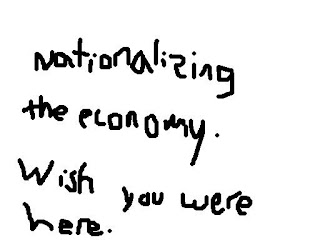 Nationalizing
the economy.
Wish you were
here.